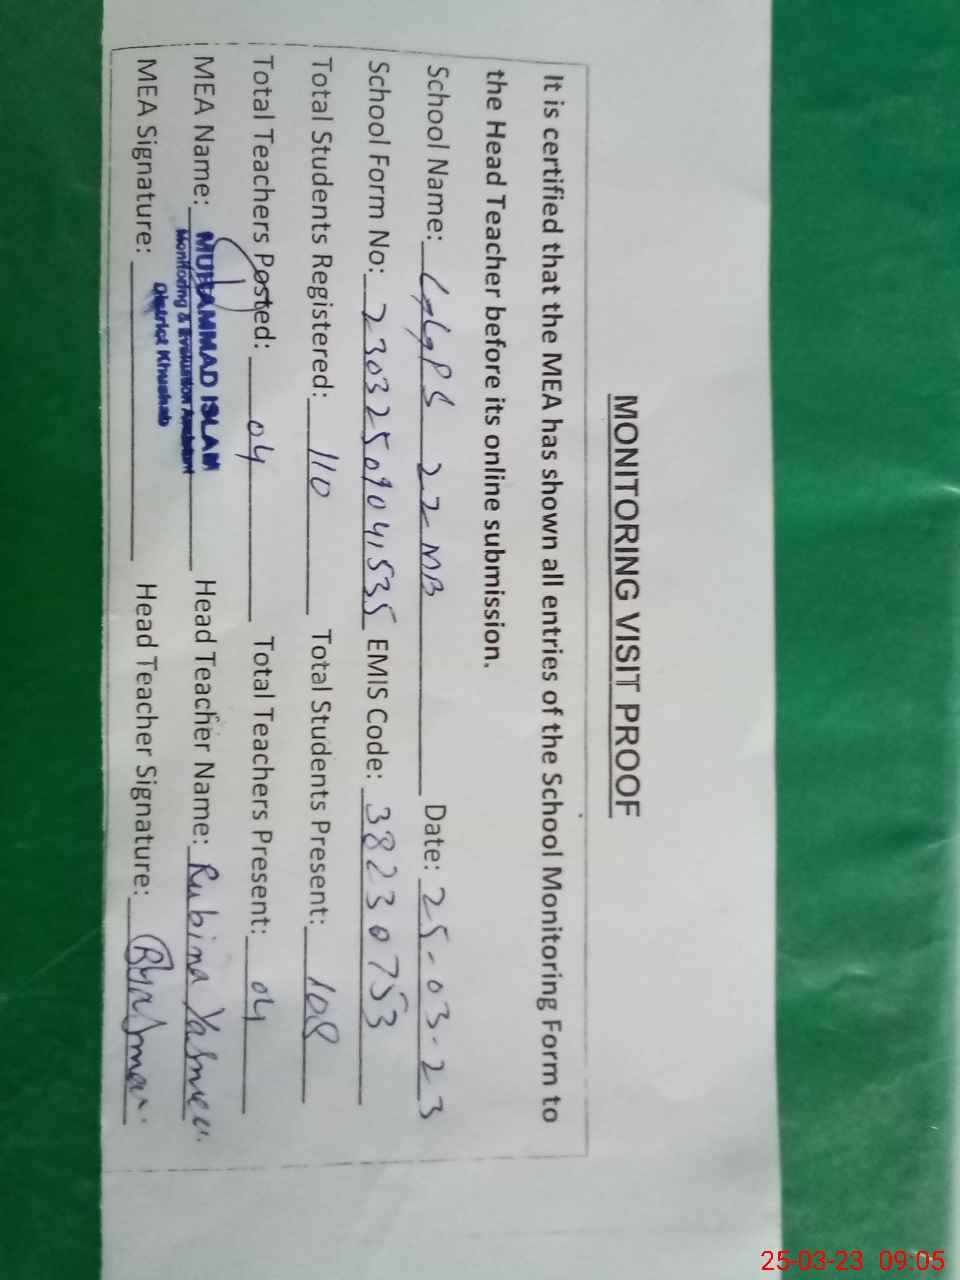 MONITORING VISIT PROOF
It is certified that the MEA has shown all entries of the School Monitoring Form to
the Head Teacher before its online submission.
School Name: GGPS 22 MB Date: 25-03-23
School Form No: 23032509041535 EMIS Code: 38230753
Total Students Registered: 110 Total Students Present: 108
Total Teachers Posted: 04 Total Teachers Present: 04
MEA Name: MUHAMMAD ISLAM Head Teacher Name: Rubina Yasmeen
Monitoring & Evaluation Assistant
District Khushab
MEA Signature: Head Teacher Signature:
25-03-23 09:05